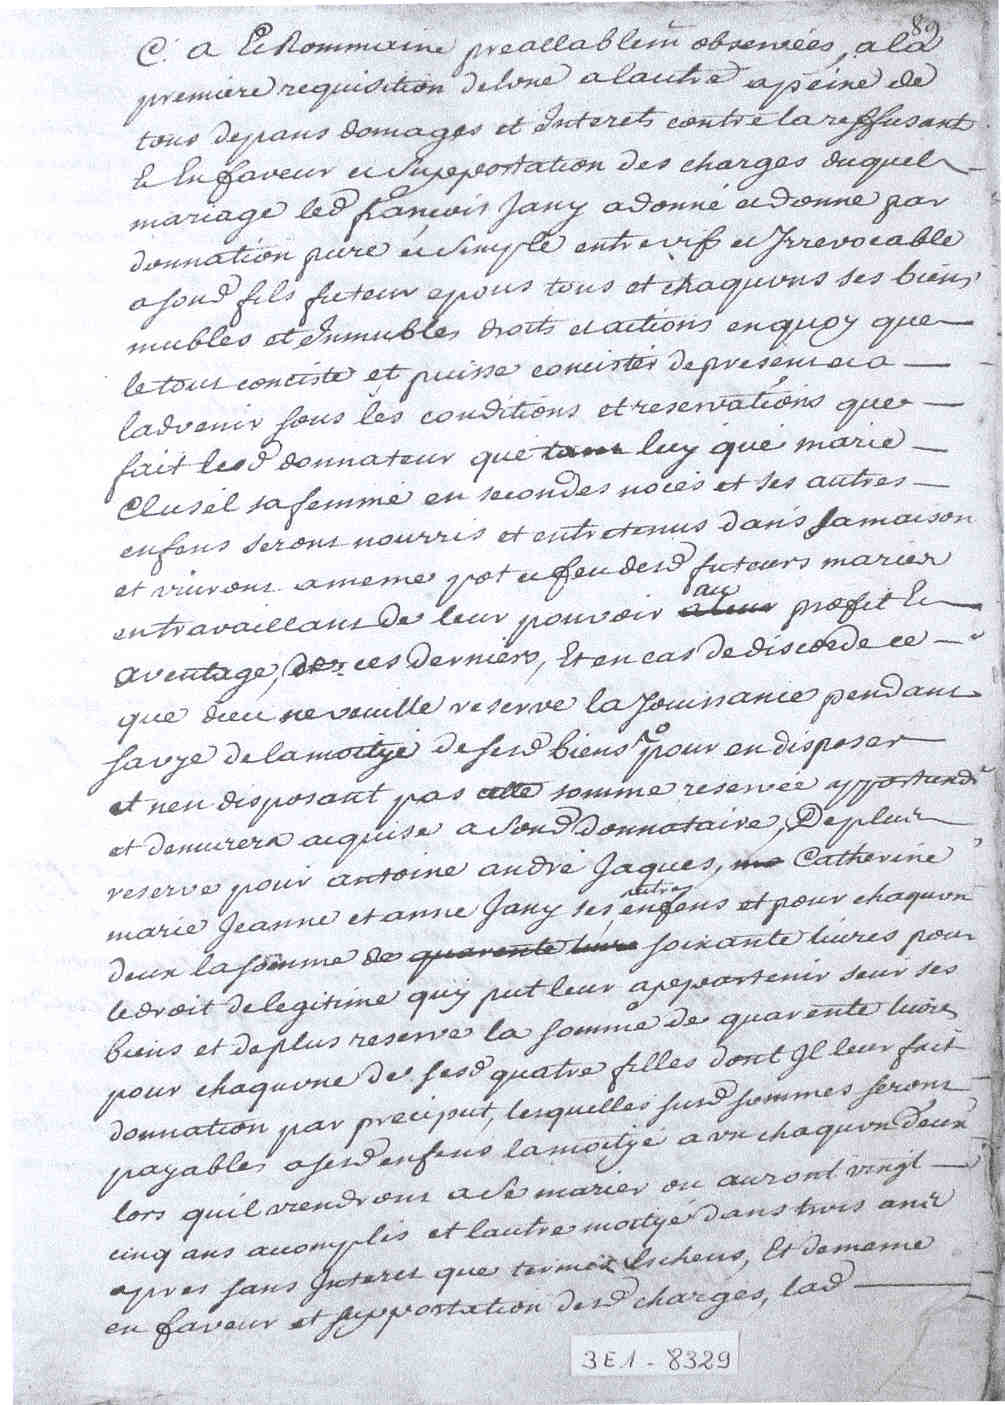 89
C. A. & Rommaine preallablem observées, a la
premiere requisition delune alautre apeine de
tous depans domages et Interets contre la reffusant
& En faveur et Supportation des charges duquel
mariage led françois Jany adonné et donne par
donnation pure et simple entre vif et Irrevocable
a sond fils futeur epous tous et chaquuns ses biens
mubles et Inmubles droits et actions enquoy que
le tout conciste et puisse concister depresent et a
ladvenir sous les conditions et reservations que
fait led donnateur que tant luy que marie
Clusel sa femme en secondes noces et ses autres
enfens seront nourris et entretenus dans sa maison
et vivront a meme pot et feu desd futeurs mariés
en travaillant de leur pouvoir a leur au profit Et
aventage, des ces derniers, Et en cas de discorde ce
que dieu ne veuille reserve la Jouissance pendant
sa vye de la moitye de sesd biens pour en disposer
et nen disposant pas cette somme reservée appartiendr
et demurera acquise a sond donnataire, De plus
reserve pour antoine andré Jaques, Catherine
marie Jeanne et anne Jany ses autres enfens et pour chaquun
deux la somme de quarente livre soixante livres pour
le droit de legitime quy put leur appartenir seur ses
biens et de plus reserve la somme de quarente livres
pour chaquune de sesd quatre filles dont Il leur fait
donnation par preciput, lesquelles susd sommes seront
payables a sesd enfens la moitye a un chaquun deux
lors quil viendront a se marier ou auront vingt
cinq ans acomplis et lautre moitye dans trois ans
apres sans Interet que termes Escheus, Et dememe
en faveur et supportation desd charges, lad
3 E 1 - 8329